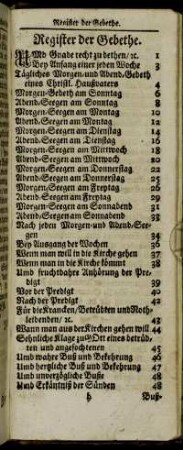 Register der Gebethe.
Register der Gebethe.
UMb Gnade recht zu bethen/ ꝛc. 1
Bey Anfang einer jeden Woche 3
Täglichen Morgen- und Abend-Gebeth
eines Christl. Haußvaters 4
Morgen-Gebeth am Sonntag 6
Abend-Seegen am Sonntag 8
Morgen-Seegen am Montag 10
Abend-Seegen am Montag 12
Morgen-Seegen am Dienstag 14
Abend-Seegen am Dienstag 16
Morgen-Seegen am Mittwoch 18
Abend-Seegen am Mittwoch 20
Morgen-Seegen am Donnerstag
Abend-Seegen am Donnerstag 25
Morgen-Seegen am Freytag 26
Abend-Seegen am Freytag 29
Morgen-Seegen am Sonnabend 31
Abend-Seegen am Sonnabend 33
Nach jeden Morgen- und Abend-See-
gen 34
Bey Ausgang der Wochen 36
Wenn man will in die Kirche gehen 37
Wenn man in die Kirche kömmt 38
Umb fruchtbahre Anhörung der Pre-
digt 39
Vor der Predigt 40
Nach der Predigt 42
Für die Krancken/ Betrübten und Noth-
leidenden/ ꝛc. 43
Wann man aus der Kirchen gehen will 44
Sehnliche Klage zu GOtt eines betrüb-
ten und angefochtenen 45
Umb wahre Buß und Bekehrung 46
Umb hertzliche Buß und Bekehrung 47
Umb unverzögliche Buße 48
Umb Erkäntniß der Sünden 48
h Buß-